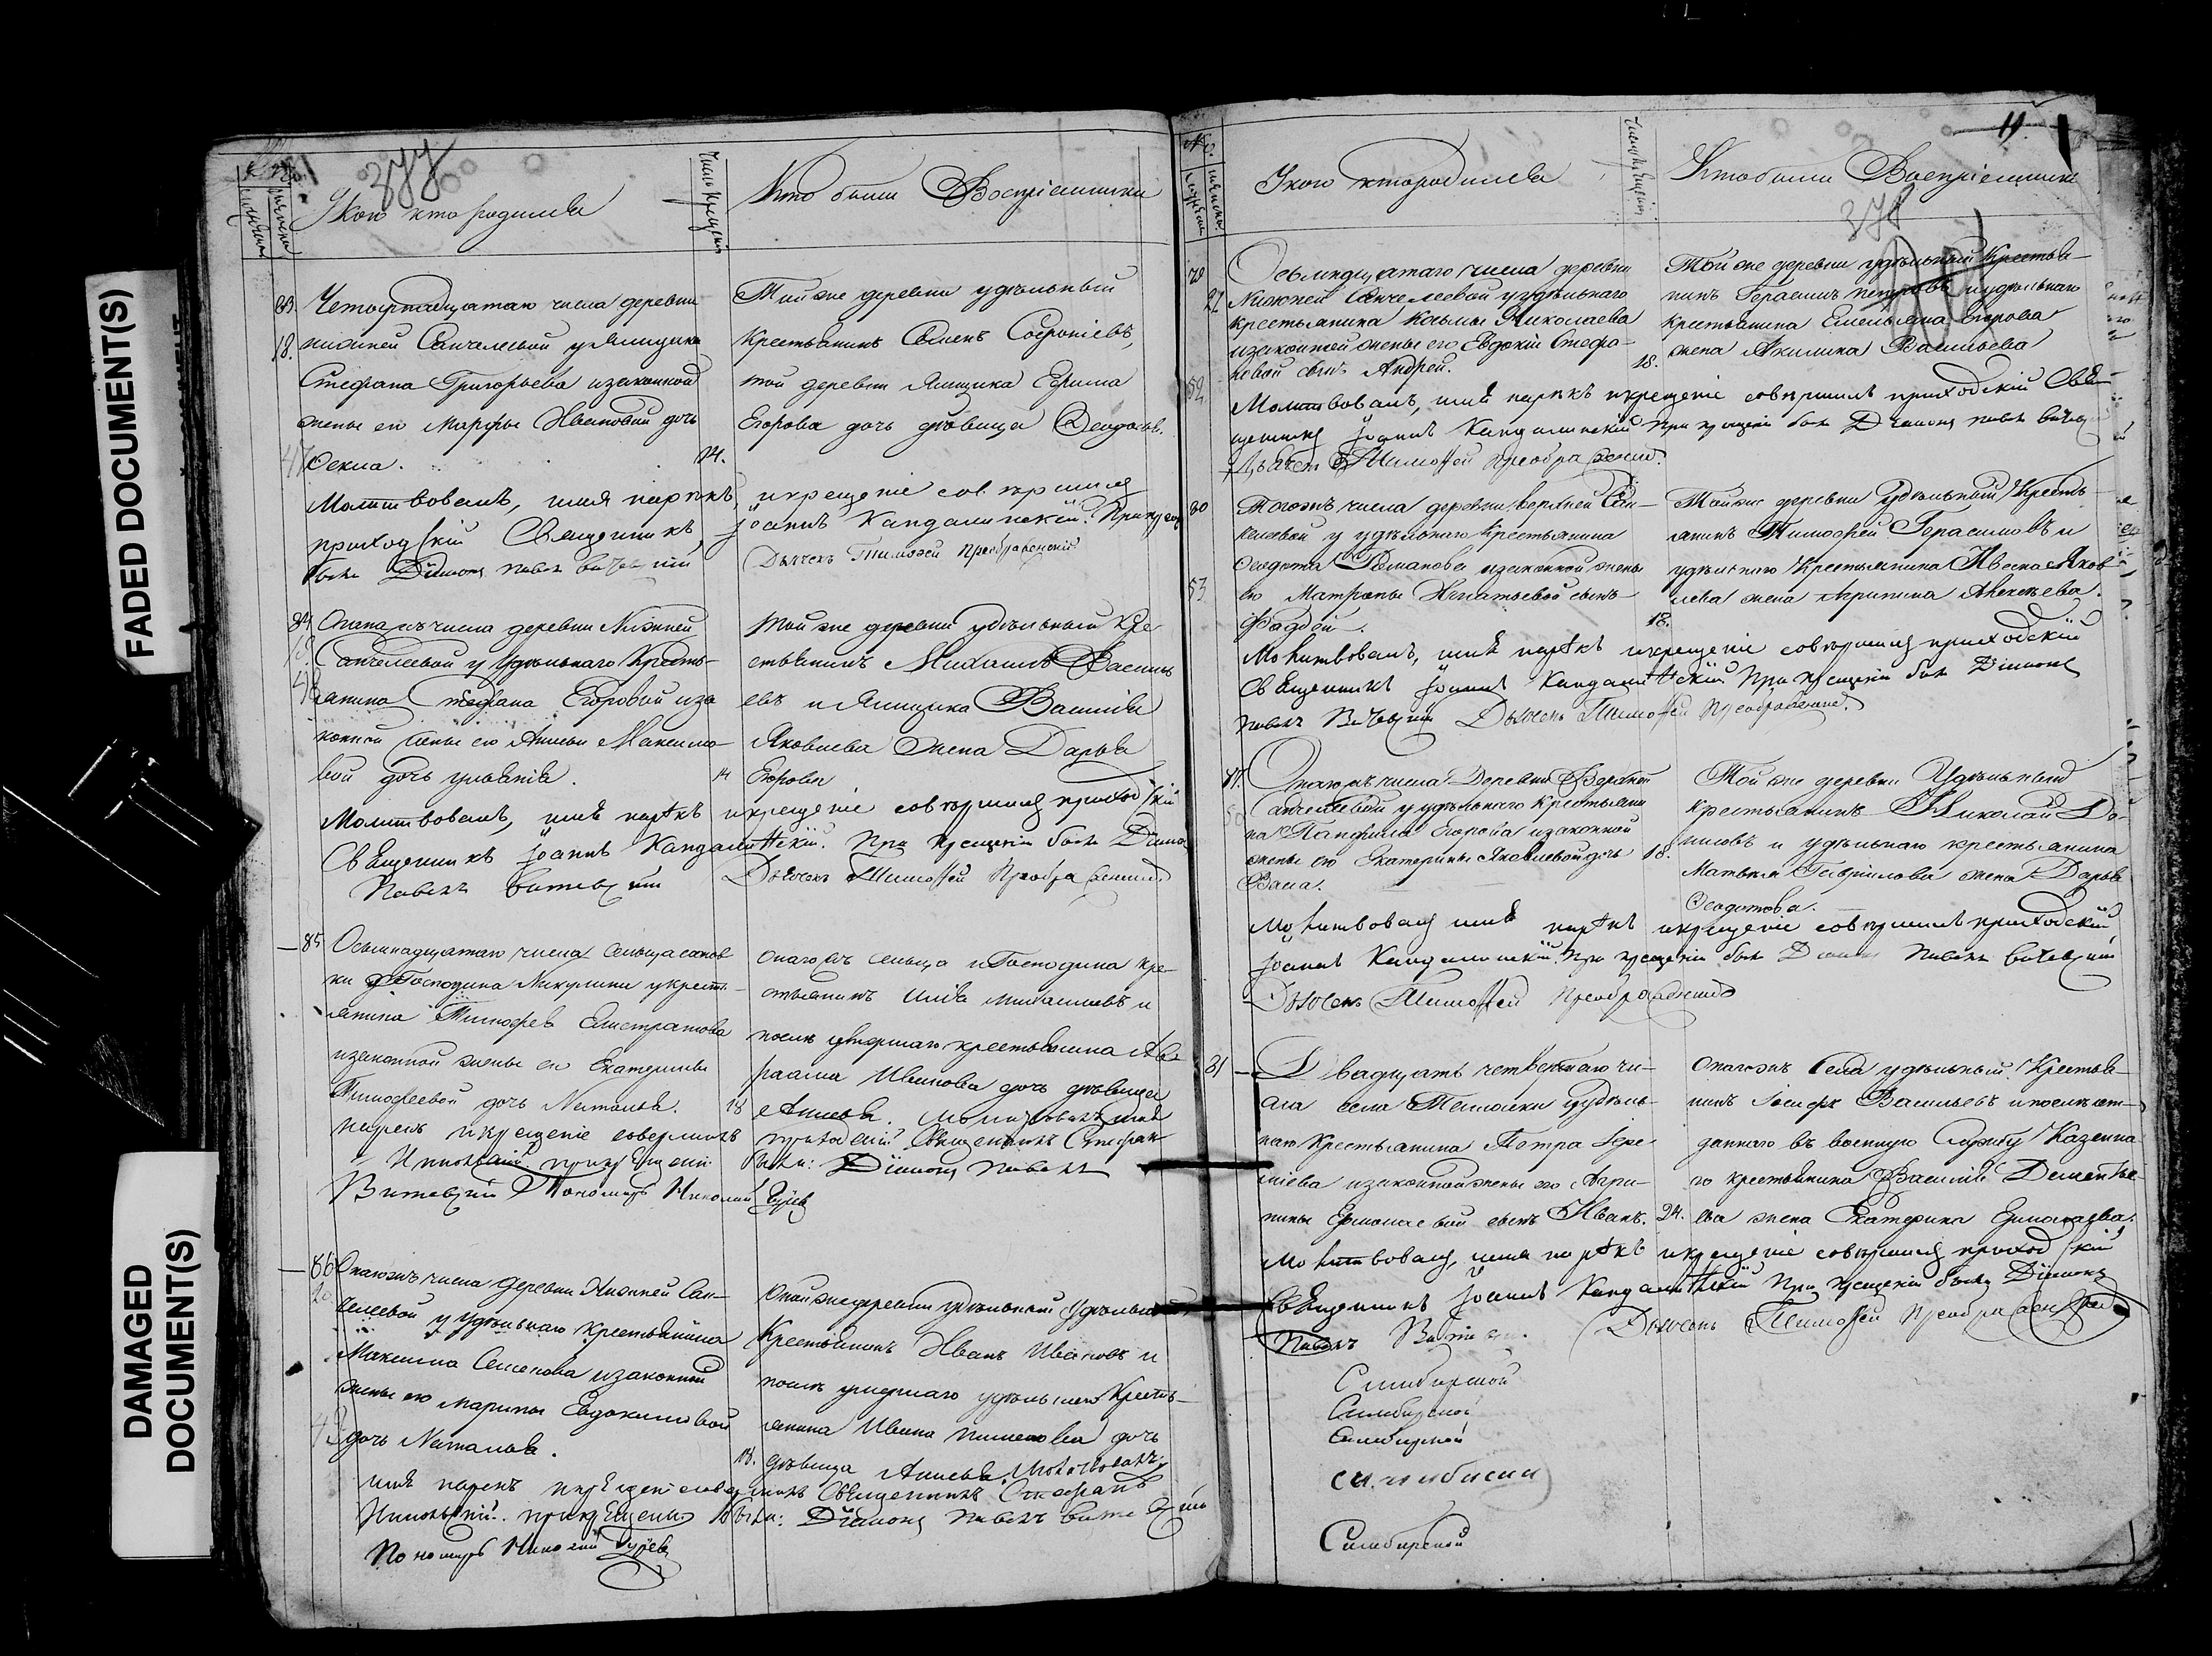 FADED DOCUMENT(S)
DAMAGED
DOCUMENT(S)
377
У кого кто родился
Число крещенія
Кто были Воспріемники
83.
18.
Четырнадцатаго числа деревни
нижней Санчелеевой у Ямщика
Стефана Григорьева и законной
жены его Марфы Ивановой дочь
Фекла.
14.
Той же деревни удѣльный
крестьянинъ Семенъ Софоніевъ,
той деревни Ямщика
Егорова дочь дѣвица
Молитвовалъ, имя нарекъ, и крещеніе совершилъ
приходскій Священникъ Іоаннъ Кандалинскій. При крещ
были Діаконъ Павелъ Дьячекъ Тимофей Преображенскій
84
Онагожъ числа деревни Нижней
Санчелеевой у Удѣльнаго Кресть-
янина Стефана Егорова и за
конной жены его Анисьи Максимо-
вой дочь Ульянія.
14
Той же деревни удѣльный Кре
стьянинъ Михаилъ Василь
евъ и Ямщика Василія
Яковлева жена Дарья
Егорова
Молитвовалъ, имя нарекъ и крещеніе совершилъ приходскій
Священникъ Іоаннъ Кандалинскій. При крещеніи были Діако
Павелъ Дьячекъ Тимофей Преображенскій
85
Осьмнадцатаго числа сельца
Господина Никулина у крестъ-
янина Тимофея Елистратова
и законной жены его Екатерины
Тимофеевой дочь Наталья.
18
Онагожъ сельца и Господина кре-
стьянинъ Илья Михайловъ и
послѣ умершаго крестьянина Ав
раама Иванова дочь дѣвица
Анисья. Молитвовалъ имя
нарекъ и крещеніе совершилъ приходскій Священникъ Стефанъ
при крещеніи были: Діаконъ Павелъ
Пономарь Николай Гурьевъ
86
Онагожъ числа деревни Нижней Сан-
челеевой у Удѣльнаго Крестьянина
Максима Семенова и законной
жены его Марины Евдокимовой
дочь Наталья.
18.
Оной же деревни удѣльный Удѣльный
Крестьянинъ Иванъ Ивановъ и
послѣ умершаго удѣльнаго Кресть-
янина Ивана дочь
дѣвица Анисья. Молитвовалъ,
имя нарекъ и крещеніе совершилъ Священникъ Стефанъ
при крещеніи были: Діаконъ Павелъ
Пономарь Николай Гурьевъ
11.
378
У кого кто родился
Число крещенія
Кто были Воспріемники
27
52
Осьмнадцатаго числа деревни
Нижней Санчелеевой у удѣльнаго
крестьянина Касьмы Николаева
и законной жены его Евдокіи Стефа-
новой сынъ Андрей.
18.
Той же деревни удѣльный Крестья-
нинъ Герасимъ Петровъ и удѣльнаго
крестьянина Емельяна Егорова
жена Акилина Васильева
Молитвовалъ, имя нарекъ и крещеніе совершилъ приходскій Свя
щенникъ Іоаннъ Кандалинскій При крещеніи были Діаконъ Павелъ
Дьячекъ Тимофей Преображенскій.
80
53
Тогожъ числа деревни верхней Сан-
челеевой у удѣльнаго Крестьянина
Феодота Романова и законной жены
его Матроны Игнатьевой сынъ
Фадей.
18.
Той же деревни Удѣльный Кресть-
янинъ Тимофей Герасимовъ и
удѣльнаго Крестьянина Ивана Яков
лева жена Агрипина Алексеева.
Молитвовалъ, имя нарекъ и крещеніе совершилъ приходскій
Священникъ Іоаннъ Кандалинскій При крещеніи были Діаконъ
Павелъ Дьячекъ Тимофей Преображенскій.
Онагожъ числа Деревни Верхней
Санчелеевой у удѣльнаго Крестьяни
на Панфила Егорова и законной
жены его Екатерины Яковлевой дочь
Васа.
18.
Той же деревни Удѣльный
крестьянинъ Николай До-
ниловъ и удѣльнаго крестьянина
Матвея Гаврилова жена Дарья
Феодотова.
Молитвовалъ имя нарекъ и крещеніе совершилъ приходскій
Іоаннъ Кандалинскій. При крещеніи были Діаконъ Павелъ
Дьячекъ Тимофей Преображенскій
81
Двадцать четвертаго чи-
сла села Ташолки у удѣль-
наго Крестьянина Петра Ере-
мѣева и законной жены его Агри-
пины Ермолаевой сынъ Иванъ.
24.
Онагожъ Села удѣльный Крестья-
нинъ Іосифъ Васильевъ и послѣ от-
даннаго въ военную Службу Казенна
го крестьянина Василія Дементье-
ва жена Екатерина Ермолаева.
Молитвовалъ, имя нарекъ и крещеніе совершилъ приходскій
Священникъ Іоаннъ Кандалинскій При крещеніи были Діаконъ
Павелъ Дьячекъ Тимофей Преображенскій
Симбирской
Симбирской
Симбирской
Симбирской